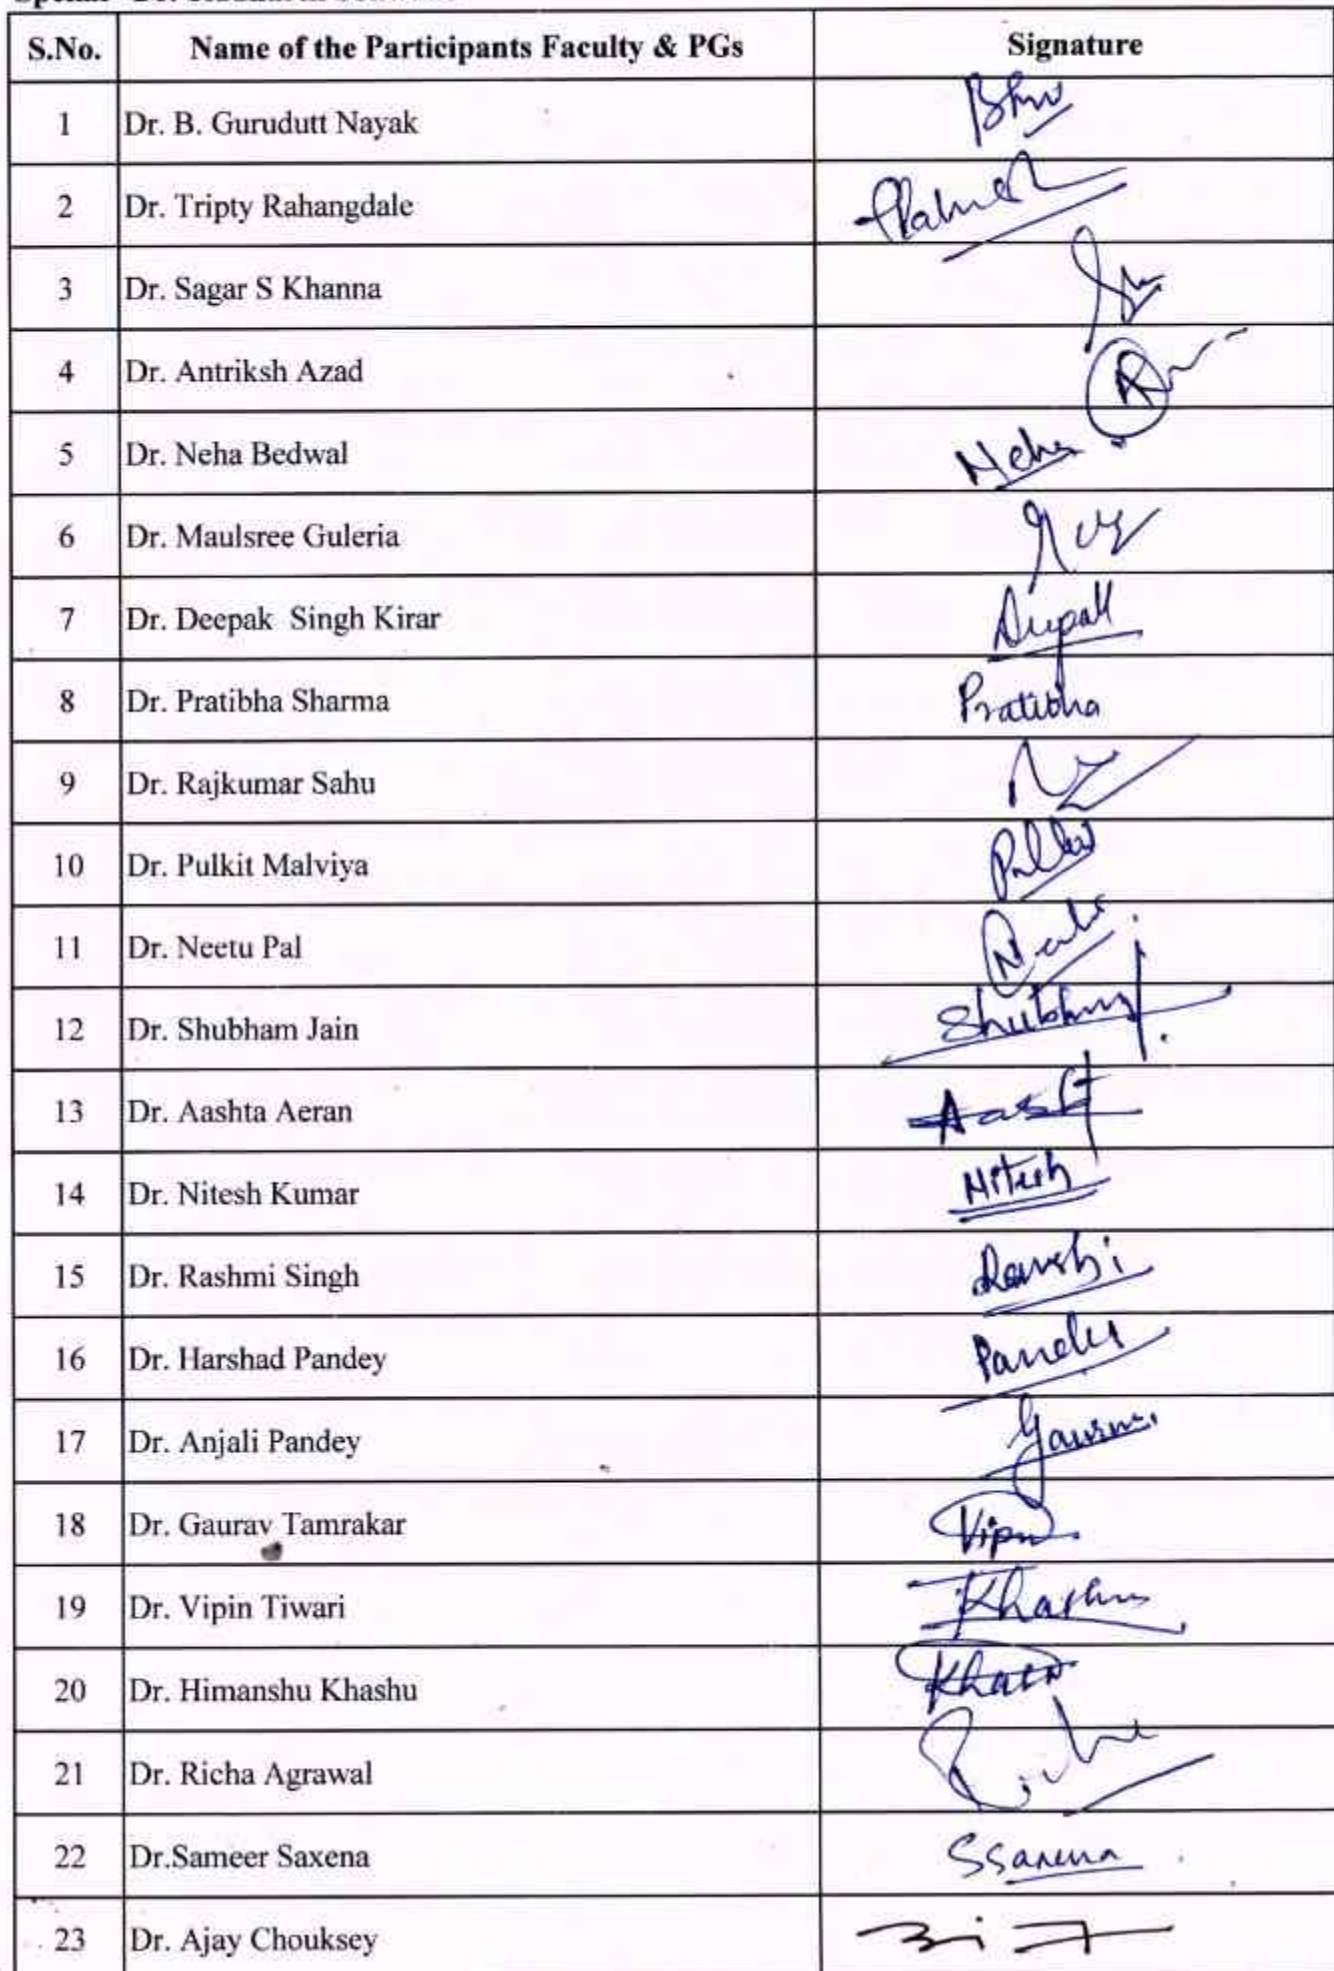 S.No. Name of the Participants Faculty & PGs Signature
1 Dr. B. Gurudutt Nayak
2 Dr. Tripty Rahangdale
3 Dr. Sagar S Khanna
4 Dr. Antriksh Azad
5 Dr. Neha Bedwal Neha
6 Dr. Maulsree Guleria
7 Dr. Deepak Singh Kirar Deepak
8 Dr. Pratibha Sharma Pratibha
9 Dr. Rajkumar Sahu
10 Dr. Pulkit Malviya
11 Dr. Neetu Pal
12 Dr. Shubham Jain Shubham
13 Dr. Aashta Aeran
14 Dr. Nitesh Kumar Nitesh
15 Dr. Rashmi Singh
16 Dr. Harshad Pandey
17 Dr. Anjali Pandey
18 Dr. Gaurav Tamrakar Vipin
19 Dr. Vipin Tiwari Khashu
20 Dr. Himanshu Khashu
21 Dr. Richa Agrawal
22 Dr.Sameer Saxena SSaxena
23 Dr. Ajay Chouksey